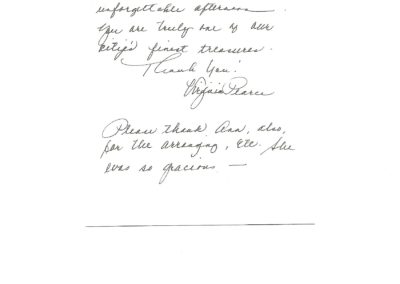 unforgettable afternoon
You are truly one of our
city's finest treasures.
Thank You!
Virginia Pearce
Please thank Ann, also,
for the arranging, etc. She
was so gracious —